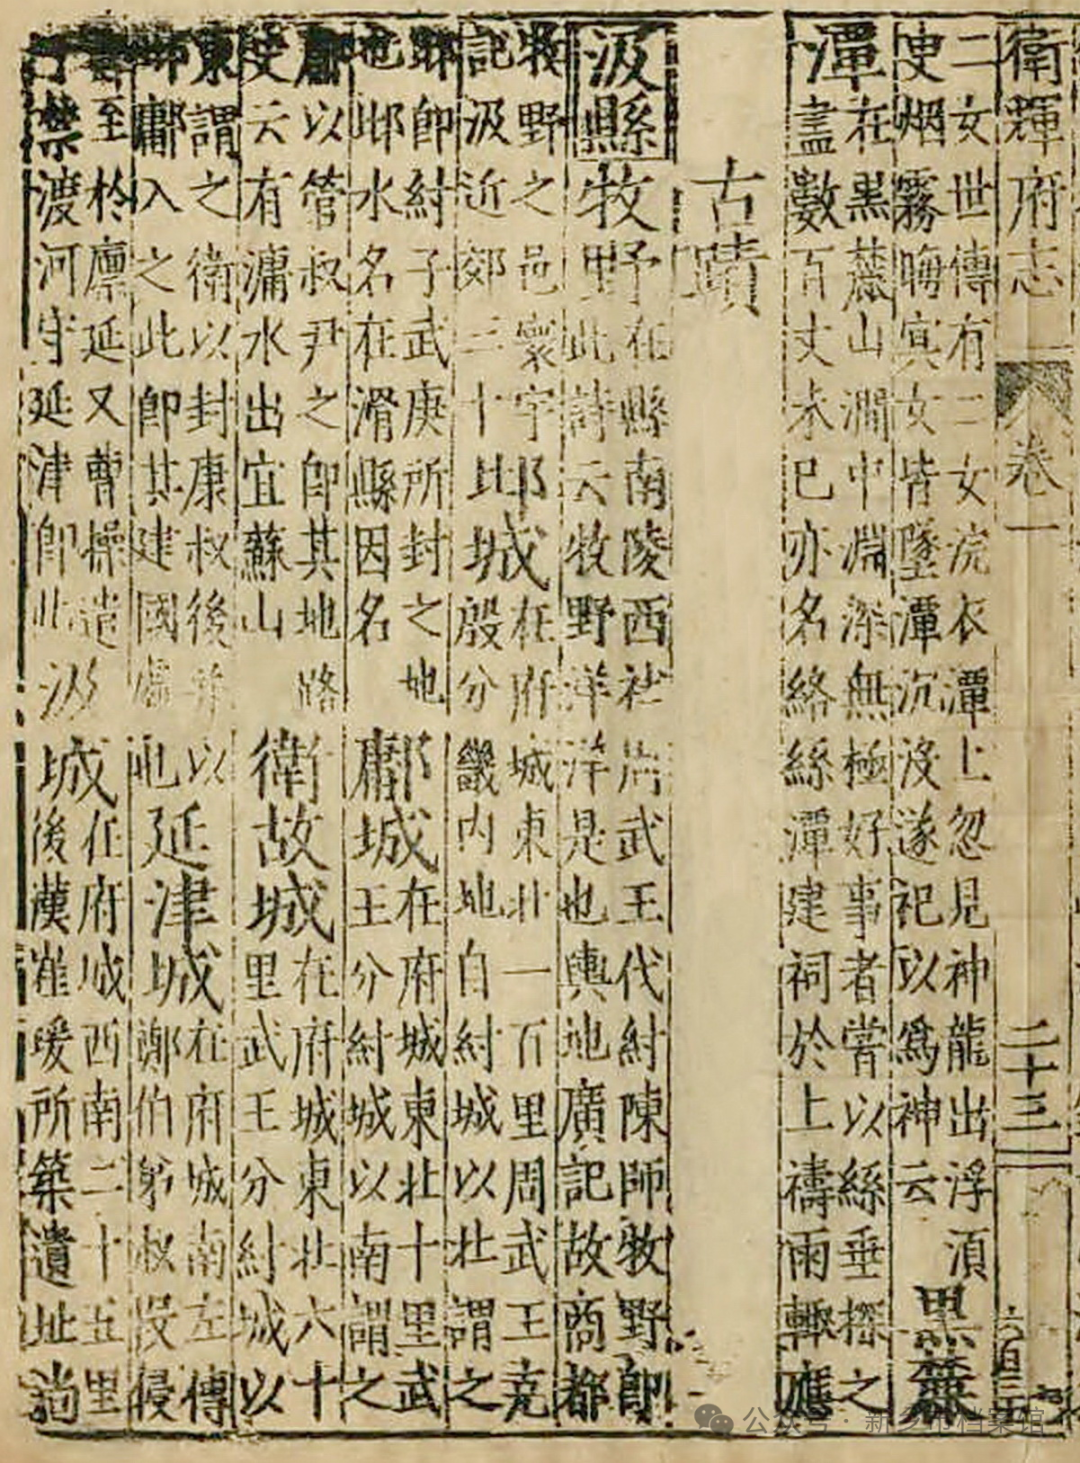 衛輝府志 卷一 二十三
二女世傳有二女浣衣潭上忽見神龍出浮湏
吏烟霧晦冥女皆墜潭沉沒遂祀以爲神云
黑麓
潭
在黒麓山澗中淵深無極好事者嘗以絲垂探之
盡數百丈未已亦名絡絲潭建祠於上禱雨輙應
古蹟
汲縣
牧野
在縣南陵西社 武王代紂陳師牧野即
此詩云牧野洋洋是也輿地廣記故商都
牧野之邑寰宇
記汲近郊三十
邶城
在府城東北一百里周武王克
殷分畿内地自紂城以北謂之
邶即紂子武庚所封之地
也邶水名在滑縣因名
鄘城
在府城東北十里武
王分紂城以南謂之
鄘以管叔尹之即其地路
史云有鄘水出宜蘇山
衛故城
在府城東北六十
里武王分紂城以
東謂之衛以封康叔後并以
邶鄘入之此即其建國處也
延津城
在府城南左傳
鄭伯弟叔段侵
鄙至於廪延又曹操遣
于禁渡河守延津即此
汲城
在府城西南二十五里
後漢崔瑗所築遺址尚
公众号·新乡市档案馆